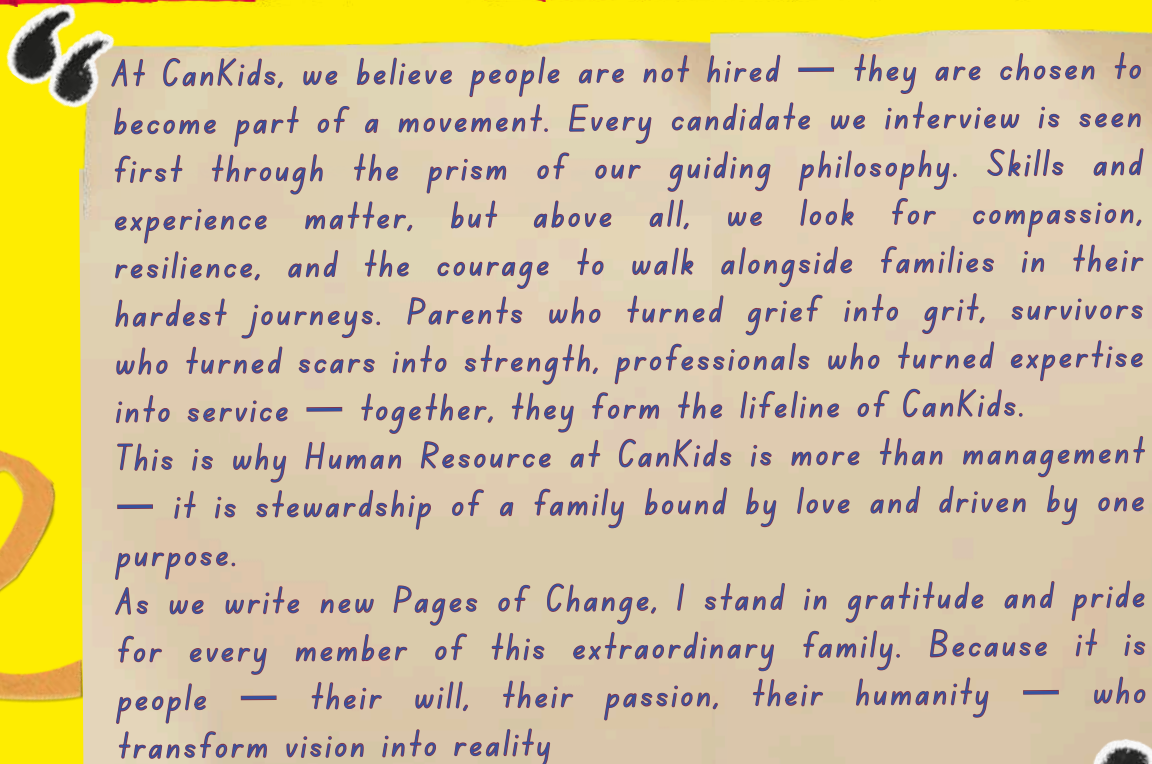 At CanKids, we believe people are not hired — they are chosen to
become part of a movement. Every candidate we interview is seen
first through the prism of our guiding philosophy. Skills and
experience matter, but above all, we look for compassion,
resilience, and the courage to walk alongside families in their
hardest journeys. Parents who turned grief into grit, survivors
who turned scars into strength, professionals who turned expertise
into service — together, they form the lifeline of CanKids.
This is why Human Resource at CanKids is more than management
— it is stewardship of a family bound by love and driven by one
purpose.
As we write new Pages of Change, I stand in gratitude and pride
for every member of this extraordinary family. Because it is
people — their will, their passion, their humanity — who
transform vision into reality